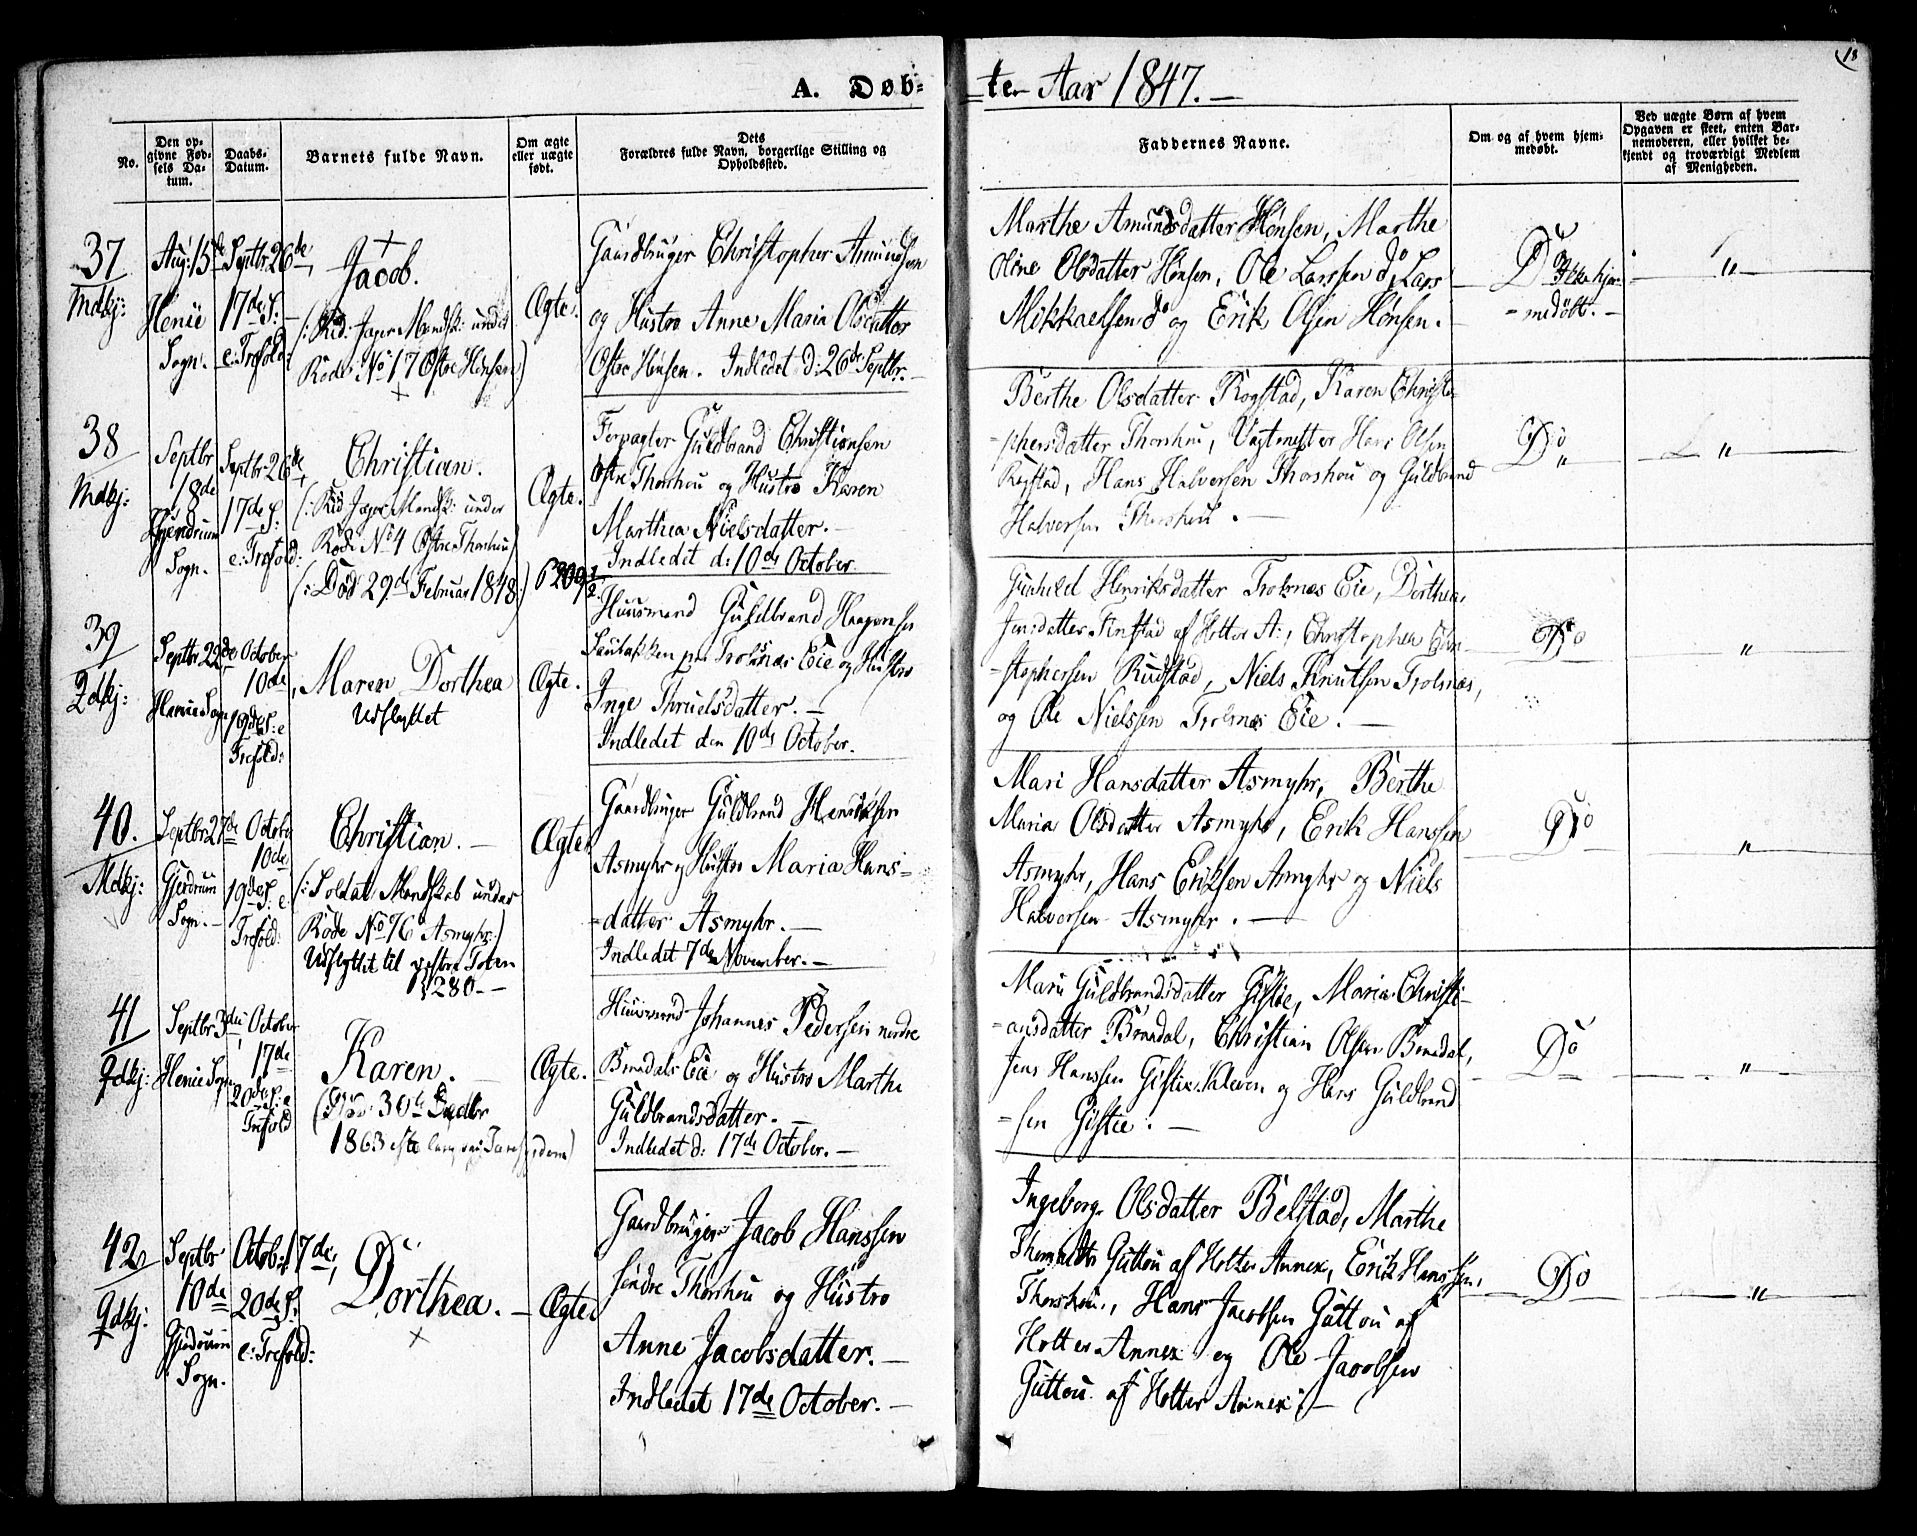 18
A. Døb-
-te Aar 1847.-
No.
Den op-
givne Fød-
sels Da-
tum.
Daabs-
Datum.
Barnets fulde Navn.
Om ægte
eller uægte
født.
Dets
Forældres fulde Navn, borgerlige Stilling og
Opholdssted.
Faddernes Navne.
Om og af hvem hjem-
medøbt.
Ved uægte Børn af hvem
Opgaven er skeet, enten Bar-
nemoderen, eller hvilket be-
kjendt og troværdigt Medlem
af Menigheden.
37
Mdkj:
Aug: 15de
Henie
Sogn.
Septbr 26de,
17de S:
e: Trefold:
Jacob.
(: Rid. Jæger Mandsk: under
Rode No 17 Østre Hønsen)
Ægte.
Gaardbruger Christopher Amundsen
og Hustro Anne Maria Olsdatter
Østre Hønsen. Indledet d: 26de Septbr.-
Marthe Amundsdatter Hønsen, Marthe
Oline Olsdatter Hønsen, Ole Larssen do, Lars
Mikkaelsen do og Erik Olsen Hønsen.
Ikke hjem-
-medøbt.-
"
38
Mdkj:
Septbr
18de
Gjerdrum
Sogn.
Septbr 26de,
17de S:
e: Trefold:
Christian.
(: Rid. Jæger Mandsk: under
Rode No 4 Østre Thorshou)
(: Død 29de Februar 1848:)
Ægte.
Forpagter Guldbrand Christiansen
Østre Thorshou og Hustro Karen
Marthea Nielsdatter.-
Indledet d: 10de October.
Berthe Olsdatter Rogstad, Karen Christo-
-phersdatter Thorshou, Vagtmester Hans Olsen
Rogstad, Hans Halvorsen Thorshou og Guldbrand
Halvorsen Thorshou.-
Do
"
39
Qdkj:
Septbr 22de
Henie Sogn
October
10de,
19de S: e
Trefold:
Maren Dorthea
Udflyttet
Ægte.
Huusmand Guldbrand Haagensen
pr Trolsnæs Eie og Hustro
Inge Thruelsdatter.-
Indledet den 10de October.
Gunhild Henriksdatter Trolsnæs Eie, Dorthea
Jensdatter Finstad af Holter A:, Christopher Chri-
-stophersen Rudstad, Niels Knutsen Trolsnæs,
og Ole Nielssen Trolsnæs Eie.-
Do
"
40.
Mdkj:
Septbr 27de
Gjerdrum
Sogn.-
October
10de
19de S: e
Trefold:
Christian.-
(: Soldat Mandskab under
Rode No 76 Asmyhr:)
Udflyttet til vestre Toten
§ 280.-
Ægte
Gaardbruger Guldbrand Henriksen
Asmyhr og Hustro Maria Hans-
-datter Asmyhr.-
Indledet 7de November.-
Mari Hansdatter Asmyhr, Berthe
Maria Olsdatter Asmyhr, Erik Hanssen
Asmyhr, Hans Eriksen Asmyhr og Niels
Halvorsen Asmyhr.-
Do
"
41
Qdkj:
Septbr 3die,
Henie Sogn
October
17de
20de S: e
Trefold
Karen.
1863
Ægte.
Huusmand Johannes Pedersen nordre
Eie og Hustro Marthe
Guldbrandsdatter.-
Indledet d: 17de October.-
Mari Guldbrandsdatter Gistie, Maria Christi-
-ansdatter Christian Olsen
Jens Hanssen og Hans Guldbrand
-sen Gistie.-
Do
"
42
Qdkj:
Septbr
10de
Gjerdrum
Sogn.
Octob: 17de,
20de S:
e: Trefold:
Dorthea.-
Ægte
Gaardbruger Jacob Hanssen
søndre Thorshou og Hustro
Anne Jacobsdatter.-
Indledet 17de October.-
Ingeborg Olsdatter Belstad, Marthe
Guttou af Holter Annex, Erik Hanssen,
Thorshou, Hans Jacobsen Guttou af
Holter Annex og Ole Jacobsen
Guttou af Holter Annex.-
Do
"